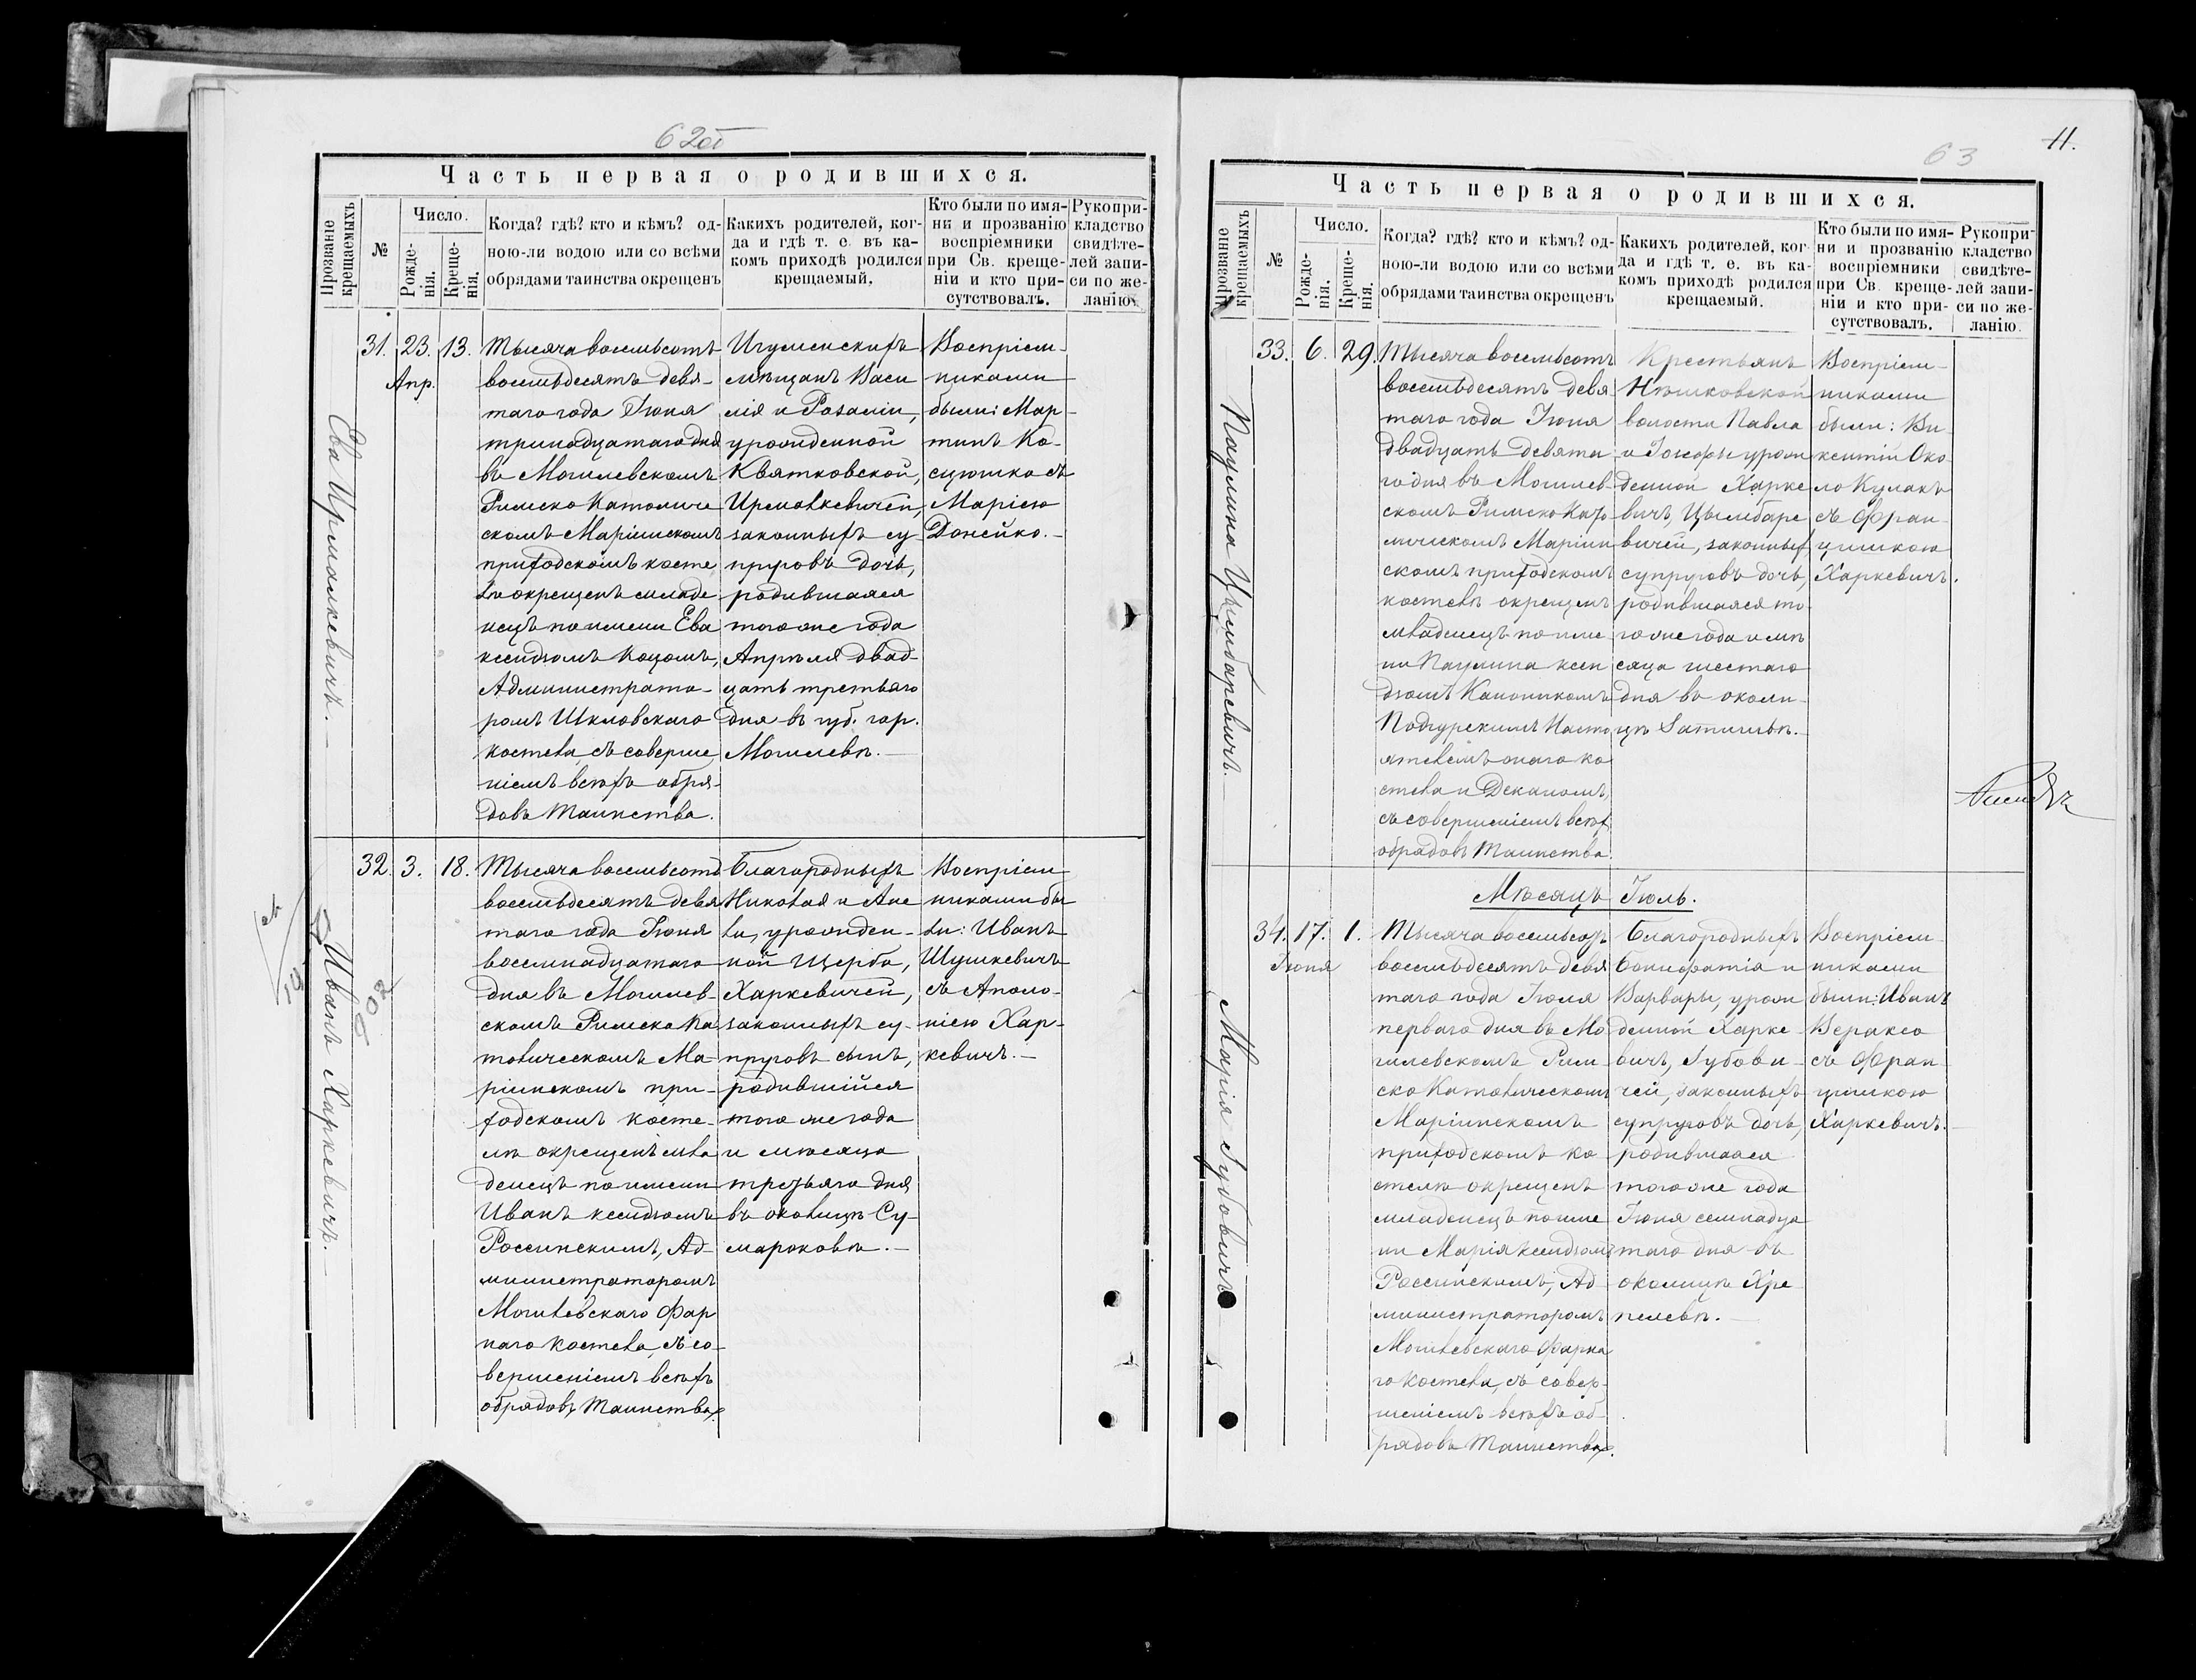 62об
Часть первая о родившихся.
Прозваніе крещаемыхъ
№
Число.
Рожде-
нія.
Креще-
нія.
Когда? гдѣ? кто и кѣмъ? од-
ною-ли водою или со всѣми
обрядами таинства окрещенъ
Какихъ родителей, ког-
да и гдѣ т. е. въ ка-
комъ приходѣ родился
крещаемый.
Кто были по имя-
ни и прозванію
воспріемники
при Св. креще-
ніи и кто при-
сутствовалъ.
Рукопри-
кладство
свидѣте-
лей запи-
си по же-
ланію.
Ева Ирмалкевичъ.
31.
23.
Апр.
13.
Тысяча восемьсотъ
восемьдесятъ девя-
таго года Іюня
тринадцатаго дня
въ Могилевскомъ
Римско Католиче
скомъ Маріинскомъ
приходскомъ косте
лѣ окрещенъ младе
нецъ по имени Ева
ксендзомъ Коцомъ,
Администрато-
ромъ Шкловскаго
костела, съ соверше
ніемъ всѣхъ обря-
довъ Таинства.
Игуменскихъ
мѣщанъ Васи
лія и Розаліи,
урожденной
Квятковской,
Ирмалкевичей,
законныхъ су-
пруговъ дочь,
родившаяся
того же года
Апрѣля двад-
цать третьяго
дня въ губ. гор.
Могилевѣ.
Воспріем-
никами
были: Мар
тинъ Ко-
сцюшко съ
Маріею
Донейко.
Иванъ Харкевичъ.
32.
3.
18.
Тысяча восемьсотъ
восемьдесятъ девя
таго года Іюня
восемнадцатаго
дня въ Могилев-
скомъ Римско Ка
толическомъ Ма-
ріинскомъ при-
ходскомъ косте-
лѣ окрещенъ мла
денецъ по имени
Иванъ ксендзомъ
Россинскимъ, Ад-
министраторомъ
Могилевскаго Фар
наго костела, съ со-
вершеніемъ всѣхъ
обрядовъ Таинства.
Благородныхъ
Николая и Ане
ли, урожден-
ной Щерба,
Харкевичей,
законныхъ су-
пруговъ сынъ,
родившійся
того же года
и мѣсяца
третьяго дня
въ околицѣ Су-
марокова.
Воспріем
никами бы
ли: Иванъ
Шушкевичъ
съ Аполо-
ніею Хар-
кевичъ.
63
11.
Часть первая о родившихся.
Прозваніе крещаемыхъ
№
Число.
Рожде-
нія.
Креще-
нія.
Когда? гдѣ? кто и кѣмъ? од-
ною-ли водою или со всѣми
обрядами таинства окрещенъ
Какихъ родителей, ког-
да и гдѣ т. е. въ ка-
комъ приходѣ родился
крещаемый.
Кто были по имя-
ни и прозванію
воспріемники
при Св. креще-
ніи и кто при-
сутствовалъ.
Рукопри-
кладство
свидѣте-
лей запи-
си по же-
ланію.
Паулина Цымбаревичъ.
33.
6.
29.
Тысяча восемьсотъ
восемьдесятъ девя
таго года Іюня
двадцать девята
го дня въ Могилев-
скомъ Римско Като
лическомъ Маріин
скомъ приходскомъ
костелѣ окрещенъ
младенецъ по име
ни Паулина ксен
дзомъ Каноникомъ
Подгурскимъ Насто
ятелемъ онаго ко
стела и Деканомъ,
съ совершеніемъ всѣх
обрядовъ Таинства.
Крестьянъ
Нѣжковской
волости Павла
и Іозефы урож
денной Харке
вичъ, Цымбаре
вичей, законных
супруговъ дочь,
родившаяся то
го же года и мѣ
сяца шестаго
дня въ околи-
цѣ Затишьѣ.
Воспріем-
никами
были: Ви-
кентій Око
ло Кулакъ
съ Фран-
цишкою
Харкевичъ.
Мѣсяцъ Іюль.
Марія Губовичъ
34.
17.
Іюня
1.
Тысяча восемьсотъ
восемьдесятъ девя
таго года Іюля
перваго дня въ Мо
гилевскомъ Рим-
ско Католическомъ
Маріинскомъ
приходскомъ ко-
стелѣ окрещенъ
младенецъ по име
ни Марія ксендзомъ
Россинскимъ, Ад-
министраторомъ
Могилевскаго Фарна
го костела, съ совер-
шеніемъ всѣхъ об-
рядовъ Таинства.
Благородныхъ
Бонифатія и
Варвары, урож
денной Харке-
вичъ, Губови-
чей, законныхъ
супруговъ дочь,
родившаяся
того же года
Іюня семнадца
таго дня въ
околицѣ Хре-
пелевѣ.
Воспріем-
никами
были: Иванъ
Веракса
съ Фран-
цишкою
Харкевичъ.